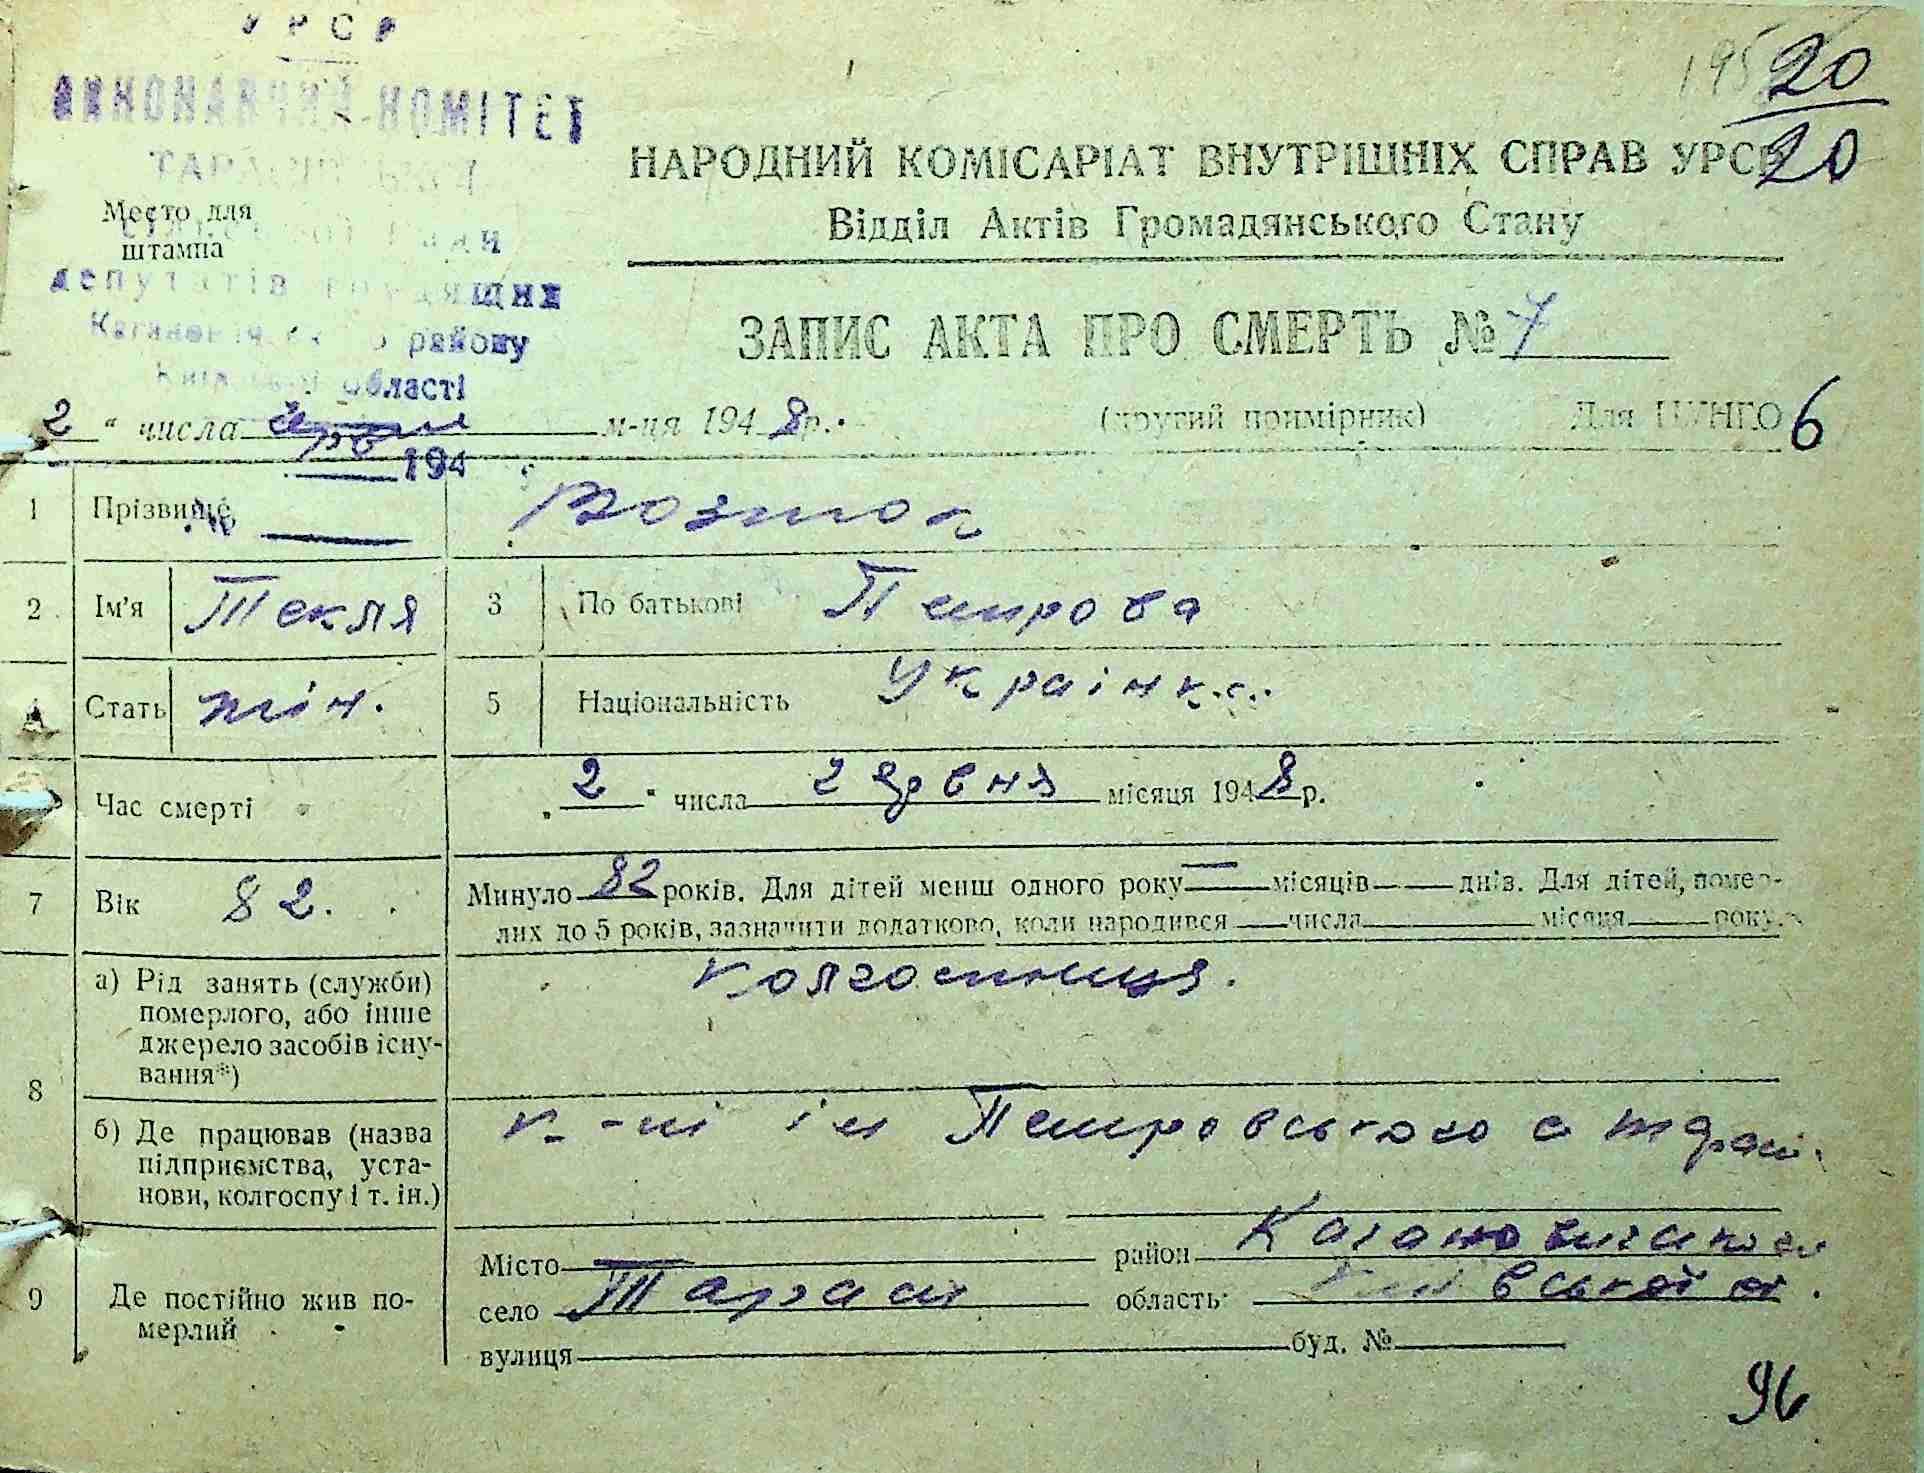 УРСР
ВИКОНАВЧИЙ КОМІТЕТ
Место для
штампа
депутатів трудящих
району
області
194
1952
20
20
НАРОДНИЙ КОМІСАРІАТ ВНУТРІШНІХ СПРАВ УРСР
Відділ Актів Громадянського Стану
ЗАПИС АКТА ПРО СМЕРТЬ № 7
2 " числа м-ця 1948 р. (другий примірник) Для ЦУНГО 6
1 Прізвище
2 Ім'я Текля 3 По батькові Петрова
4 Стать жін. 5 Національність Українка
Час смерті 2 " числа місяця 1948 р.
7 Вік 82. Минуло 82 років. Для дітей менш одного року — місяців — днів. Для дітей, помер-
лих до 5 років, зазначити додатково, коли народився — числа місяця року.
8 а) Рід занять (служби) колгоспниця.
померлого, або інше
джерело засобів існу-
вання*)
б) Де працював (назва к-пі ім Петровського с Тараси.
підприємства, уста-
нови, колгоспу і т. ін.)
9 Де постійно жив по-
мерлий
Місто — район Кагановичский
село Тараси область Київської об.
вулиця буд. №
96